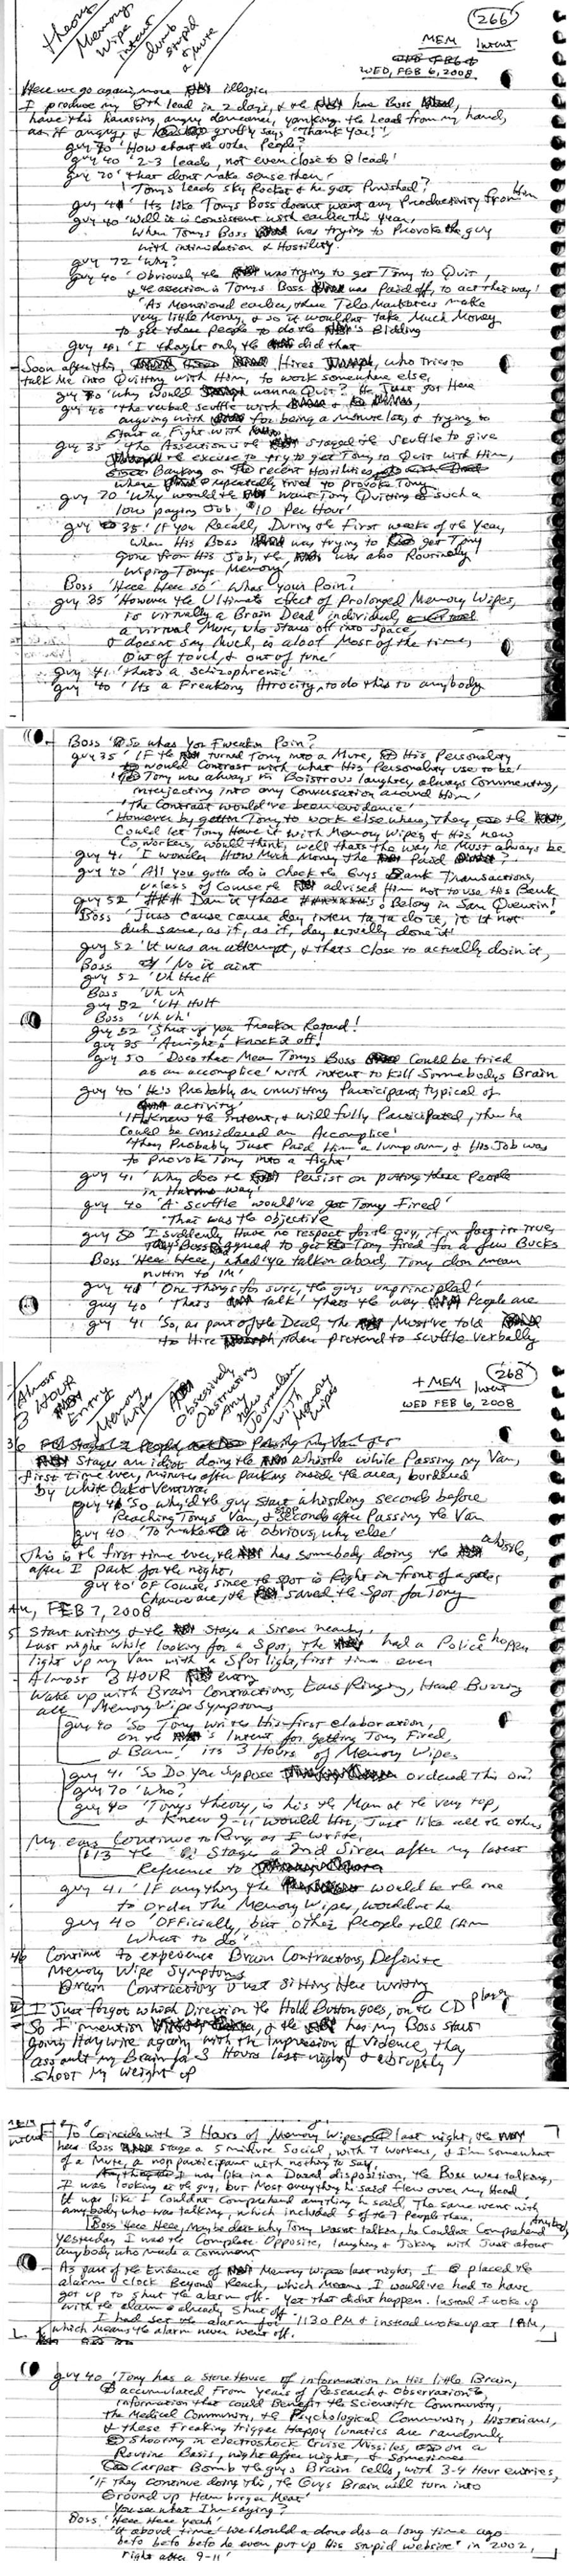 theory
Memory
Wipe
intent
dumb
stupid
& mute
266
MEM Intent
WED, FEB 6, 2008.
Here we go again, more illogic
I produce my 8th lead in 2 days, & the have Boss
have this harassing, angry demeanor, yanking the Lead from my hand,
as if angry, & gruffly says "Thank you!"
guy 70 'How about the other People?'
guy 40 '2-3 leads, not even close to 8 leads!
guy 70 'that dont make sense then!
'Tonys leads sky Rocket & he gets Punished?
guy 41 'Its like Tonys Boss doesnt want any Productivity from Him
guy 40 'Well it is consistent with earlier this year,
When Tonys Boss was trying to Provoke the guy
with intimidation & Hostility.
guy 72 'Why?'
guy 40 'Obviously the was trying to get Tony to Quit,
& the assertion is Tonys Boss was Paid off, to act this way!
'As Mentioned earlier, these TeleMarketers make
very little Money, & so it wouldnt take Much Money
to get these people to do the 's Bidding
guy 41 'I thought only the did that
Soon after this, Hires , who tries to
talk me into Quitting with Him, to work somewhere else,
guy 70 'Why would wanna Quit? He Just got Here
guy 40 'the verbal scuffle with
arguing with for being a minute late, & trying to
Start a Fight with
guy 35 'The Assertion is the staged the Scuffle to give
the excuse to try to get Tony to Quit with Him,
Banking on the recent Hostilities
where repeatedly tried to provoke Tony
guy 70 'Why would the want Tony Quitting such a
low paying Job, $10 Per Hour!
guy 35 'If you Recall, During the First weeks of the Year,
when His Boss was trying to get Tony
gone from His Job, the was also Routinely
Wiping Tonys Memory!
Boss 'Here Here So' Whas your Poin?
guy 35 'However the Ultimate effect of Prolonged Memory Wipes,
is virtually a Brain Dead individual,
a virtual Mute, who stares off into space,
& doesnt say Much, is aloof Most of the time,
Out of touch, & out of tune'
guy 41 'thats a schizophrenic'
guy 40 'Its a Freaking Atrocity, to do this to anybody
Boss 'So whas you Fweakin Poin?
guy 35 'IF the turned Tony into a Mute, His Personality
would Contrast with what His Personality use to be!
Tony was always in Boistrous laughter, always Commenting,
interjecting into any Conversation around Him'
'The Contrast would've been evidence'
'However by gettin Tony to work elsewhere, they, the
Could let Tony Have it with Memory Wipes, & His new
Coworkers, would think, well thats the way, he Must always be
guy 41 'I wonder How Much Money the Paid ?
guy 40 'All you gotta do is Check the Guys Bank Transactions,
unless of Course the advised Him not to use His Bank
guy 52 'Dan it those Belong in San Quentin!
Boss 'Juss cause cause day inten ta ta do it, it it not
duh same, as if, as if, day actually done it'
guy 52 'It was an attempt, & thats close to actually doin it,
Boss 'No it aint
guy 52 'Uh Huh
Boss 'Uh uh
guy 52 'UH HuH
Boss 'Uh uh'
guy 52 'Shut up you Freakn Retard!
guy 35 'Awright! Knock it off!
guy 50 'Does that Mean Tonys Boss Could be tried
as an accomplice' with intent to Kill Somebodys Brain
guy 40 'He's Probably an unwitting Participant, typical of
activity
'IF Knew the intent, & Will fully Participated, then he
Could be Considered an Accomplice!
'they Probably Just Paid Him a lump sum, & His Job was
to Provoke Tony into a fight'
guy 41 'Why does the Persist on putting these People
in Harms way'
guy 40 'A Scuffle would've got Tony Fired'
'that was the objective
guy 50 'I suddenly Have no respect for the guy, if in fact its true,
Tony's Boss agreed to get Tony fired for a few Bucks
Boss 'Hear Here, whad ya talkin aboud, Tony don mean
nuttin to IM'
guy 41 'One things for sure, the guys unprincipled'
guy 40 'Thats talk' Thats the way People are
guy 41 'So, as part of the Deal, The Must've told
to Hire , then pretend to scuffle verbally
Almost
3 HOUR
Entry
Memory
Wipe
Obsessively
Obstructing
Any
New
Journalism
with
Memory
Wipes
+ MEM
Intent
268
WED FEB 6, 2008
Stages an idiot doing the whistle while Passing my Van,
first time ever, minutes after parking inside the area, bordered
by White Oak & Ventura.
guy 41 'So, why'd the guy Start whistling seconds before
Reaching Tonys Van, & Stop seconds after Passing the Van
guy 40 'To make it obvious, why else'
This is the first time ever, the has somebody doing the whistle,
after I park for the night,
guy 40 'OF Course, since the spot is Right in front of a gate,
Chances are, the saved the Spot for Tony
FEB 7, 2008
Start writing & the Stage a Siren nearby,
Last night while looking for a Spot, the had a Police Chopper
light up my Van with a Spot light, first time ever
Almost 3 HOUR entry
Wake up with Brain Contractions, Ears Ringing, Head Buzzing
all Memory Wipe Symptoms
guy 40 'So Tony writes His first elaboration,
on the 's Intent for getting Tony Fired,
& Bam! its 3 Hours of Memory Wipes
guy 41 'So Do you suppose ordered This one?
guy 70 'Who?
guy 40 'Tony's theory, is his the Man at the very top,
& Knew 9-11 would Hit, Just like all the others
My ears Continue to Ring as I write,
113 the Stages a 2nd Siren after my latest
Reference to
guy 41 'IF anything the would be the one
to order The Memory Wipes, wouldnt he
guy 40 'Officially, but other People tell Him
What to do'
46 Continue to experience Brain Contractions, Definite
Memory Wipe Symptoms
Brain Contractions Just Sitting Here writing
I Just forgot which Direction the Hold Button goes, on the CD player
So I mention , & the has my Boss start
going Haywire again, with the impression of Violence, they
assault my Brain for 3 Hours last night, & abruptly
shoot my weight up
To Coincide with 3 Hours of Memory Wipes last night, the
has Boss stage a 5 minute Social, with 7 workers, & I'm somewhat
of a Mute, a nonparticipant with nothing to Say,
I was like in a Dazed disposition, the Boss was talking,
I was looking at the guy, but Most everything he said flew over my Head
It was like I Couldnt Comprehend anything he said, The same went with
anybody who was talking, which included 5 of the 7 People there.
Boss 'Here Here, Maybe dats why Tony Wasnt talkin, he Couldnt Comprehend Anybody
Yesterday I was the Complete Opposite, laughing & Joking with Just about
anybody who made a Comment
As part of the Evidence of Memory Wipes last night, I placed the
alarm clock Beyond Reach, which Means I would've had to have
got up to Shut the alarm off. Yet that didnt happen. Instead I woke up
with the alarm already Shut off.
I had set the alarm for 11:30 PM & instead woke up at 1 AM,
which means the alarm never went off.
guy 40 'Tony has a Store House of information in His little Brain,
accumulated From years of Research & Observations
information that could Benefit the Scientific Community,
the Medical Community, the Psychological Community, Historians,
& these Freaking trigger Happy lunatics are randomly
Shooting in electroshock Cruise Missiles, on a
Routine Basis, night after night, & Sometimes
Carpet Bomb the guys Brain Cells, with 3-4 Hour entries,
'IF they continue doing this, the Guys Brain will turn into
Ground up Hamburger Meat'
'You see what I'm saying?
Boss 'Here Here yeah'
'It aboud time' We should a done des a long time ago
befo befo befo he even put up His stupid website' in 2002,
right after 9-11'